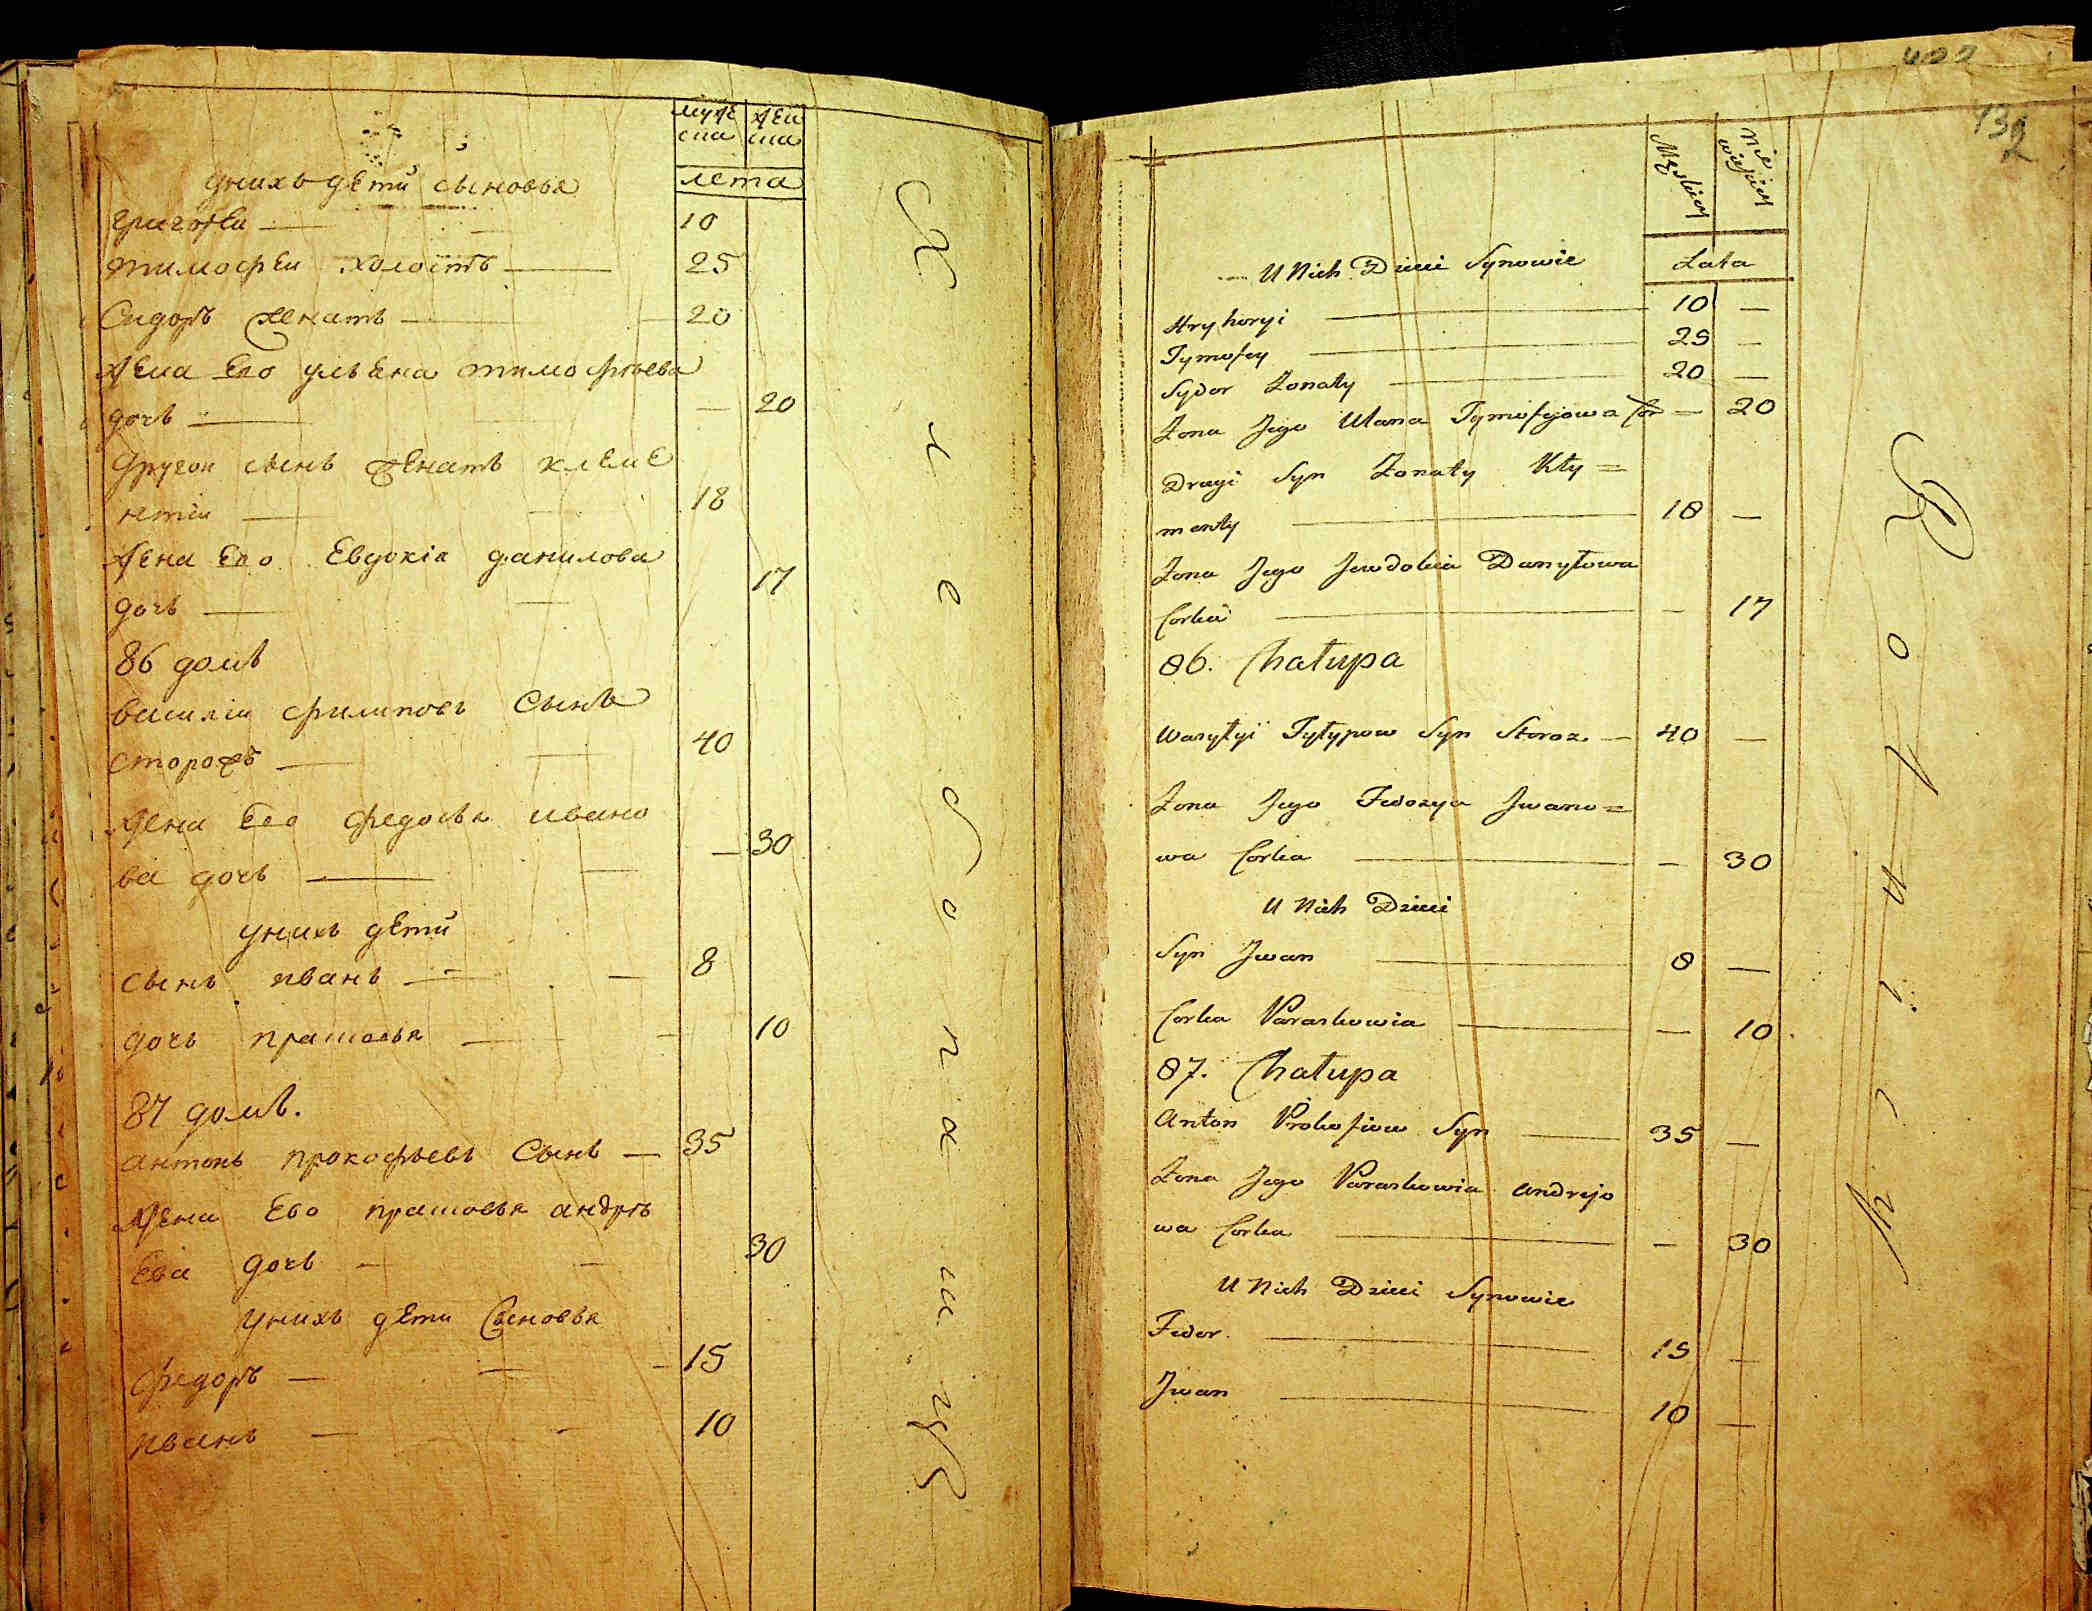 муже
ска
жен
ска
лета
у нихъ дети сыновья
григореи 10
тимофеи холостъ 25
Сидоръ женатъ 20
жена Ево ульена тимофѣева
дочь 20
другои сынъ женатъ клеме
нтіи 18
жена Ево Евдокія данилова
дочь 17
86 домъ
василіи филиповъ Сынъ
сторожъ 40
жена Ево федосья ивано
ва дочь 30
у нихъ дети
сынъ иванъ 8
дочь прасковья 10
87 домъ.
антонъ прокофьевъ Сынъ 35
жена Ево прасковья андрѣ
Ева дочь 30
у нихъ дети Сыновья
федоръ 15
иванъ 10
Хлебопашцъ
132
Męskiey
Nie
wieściey
Lata
U Nich Dzieci Synowie
Hryhoryi 10 —
Tymofey 25 —
Sydor Żonaty 20 —
Żona Jego Ulana Tymofejowa Cor — 20
Drugi Syn Żonaty Kły=
menty 18 —
Żona Jego Jewdokia Danyłowa
Corka — 17
86. Chałupa
Wasyłyi Fyłypow Syn Storoz — 40 —
Żona Jego Fedosya Jwano=
wa Corka — 30
U Nich Dzieci
Syn Jwan 8 —
Corka Paraskowia — 10
87. Chałupa
Anton Prokofiow Syn 35 —
Żona Jego Paraskowia Andrejo
wa Corka — 30
U Nich Dzieci Synowie
Fedor 15 —
Jwan 10 —
Rolnicy